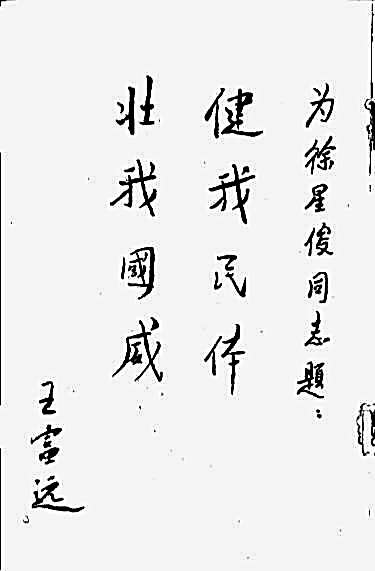 为徐星俊同志题：
健我民体
壮我國威
王富远